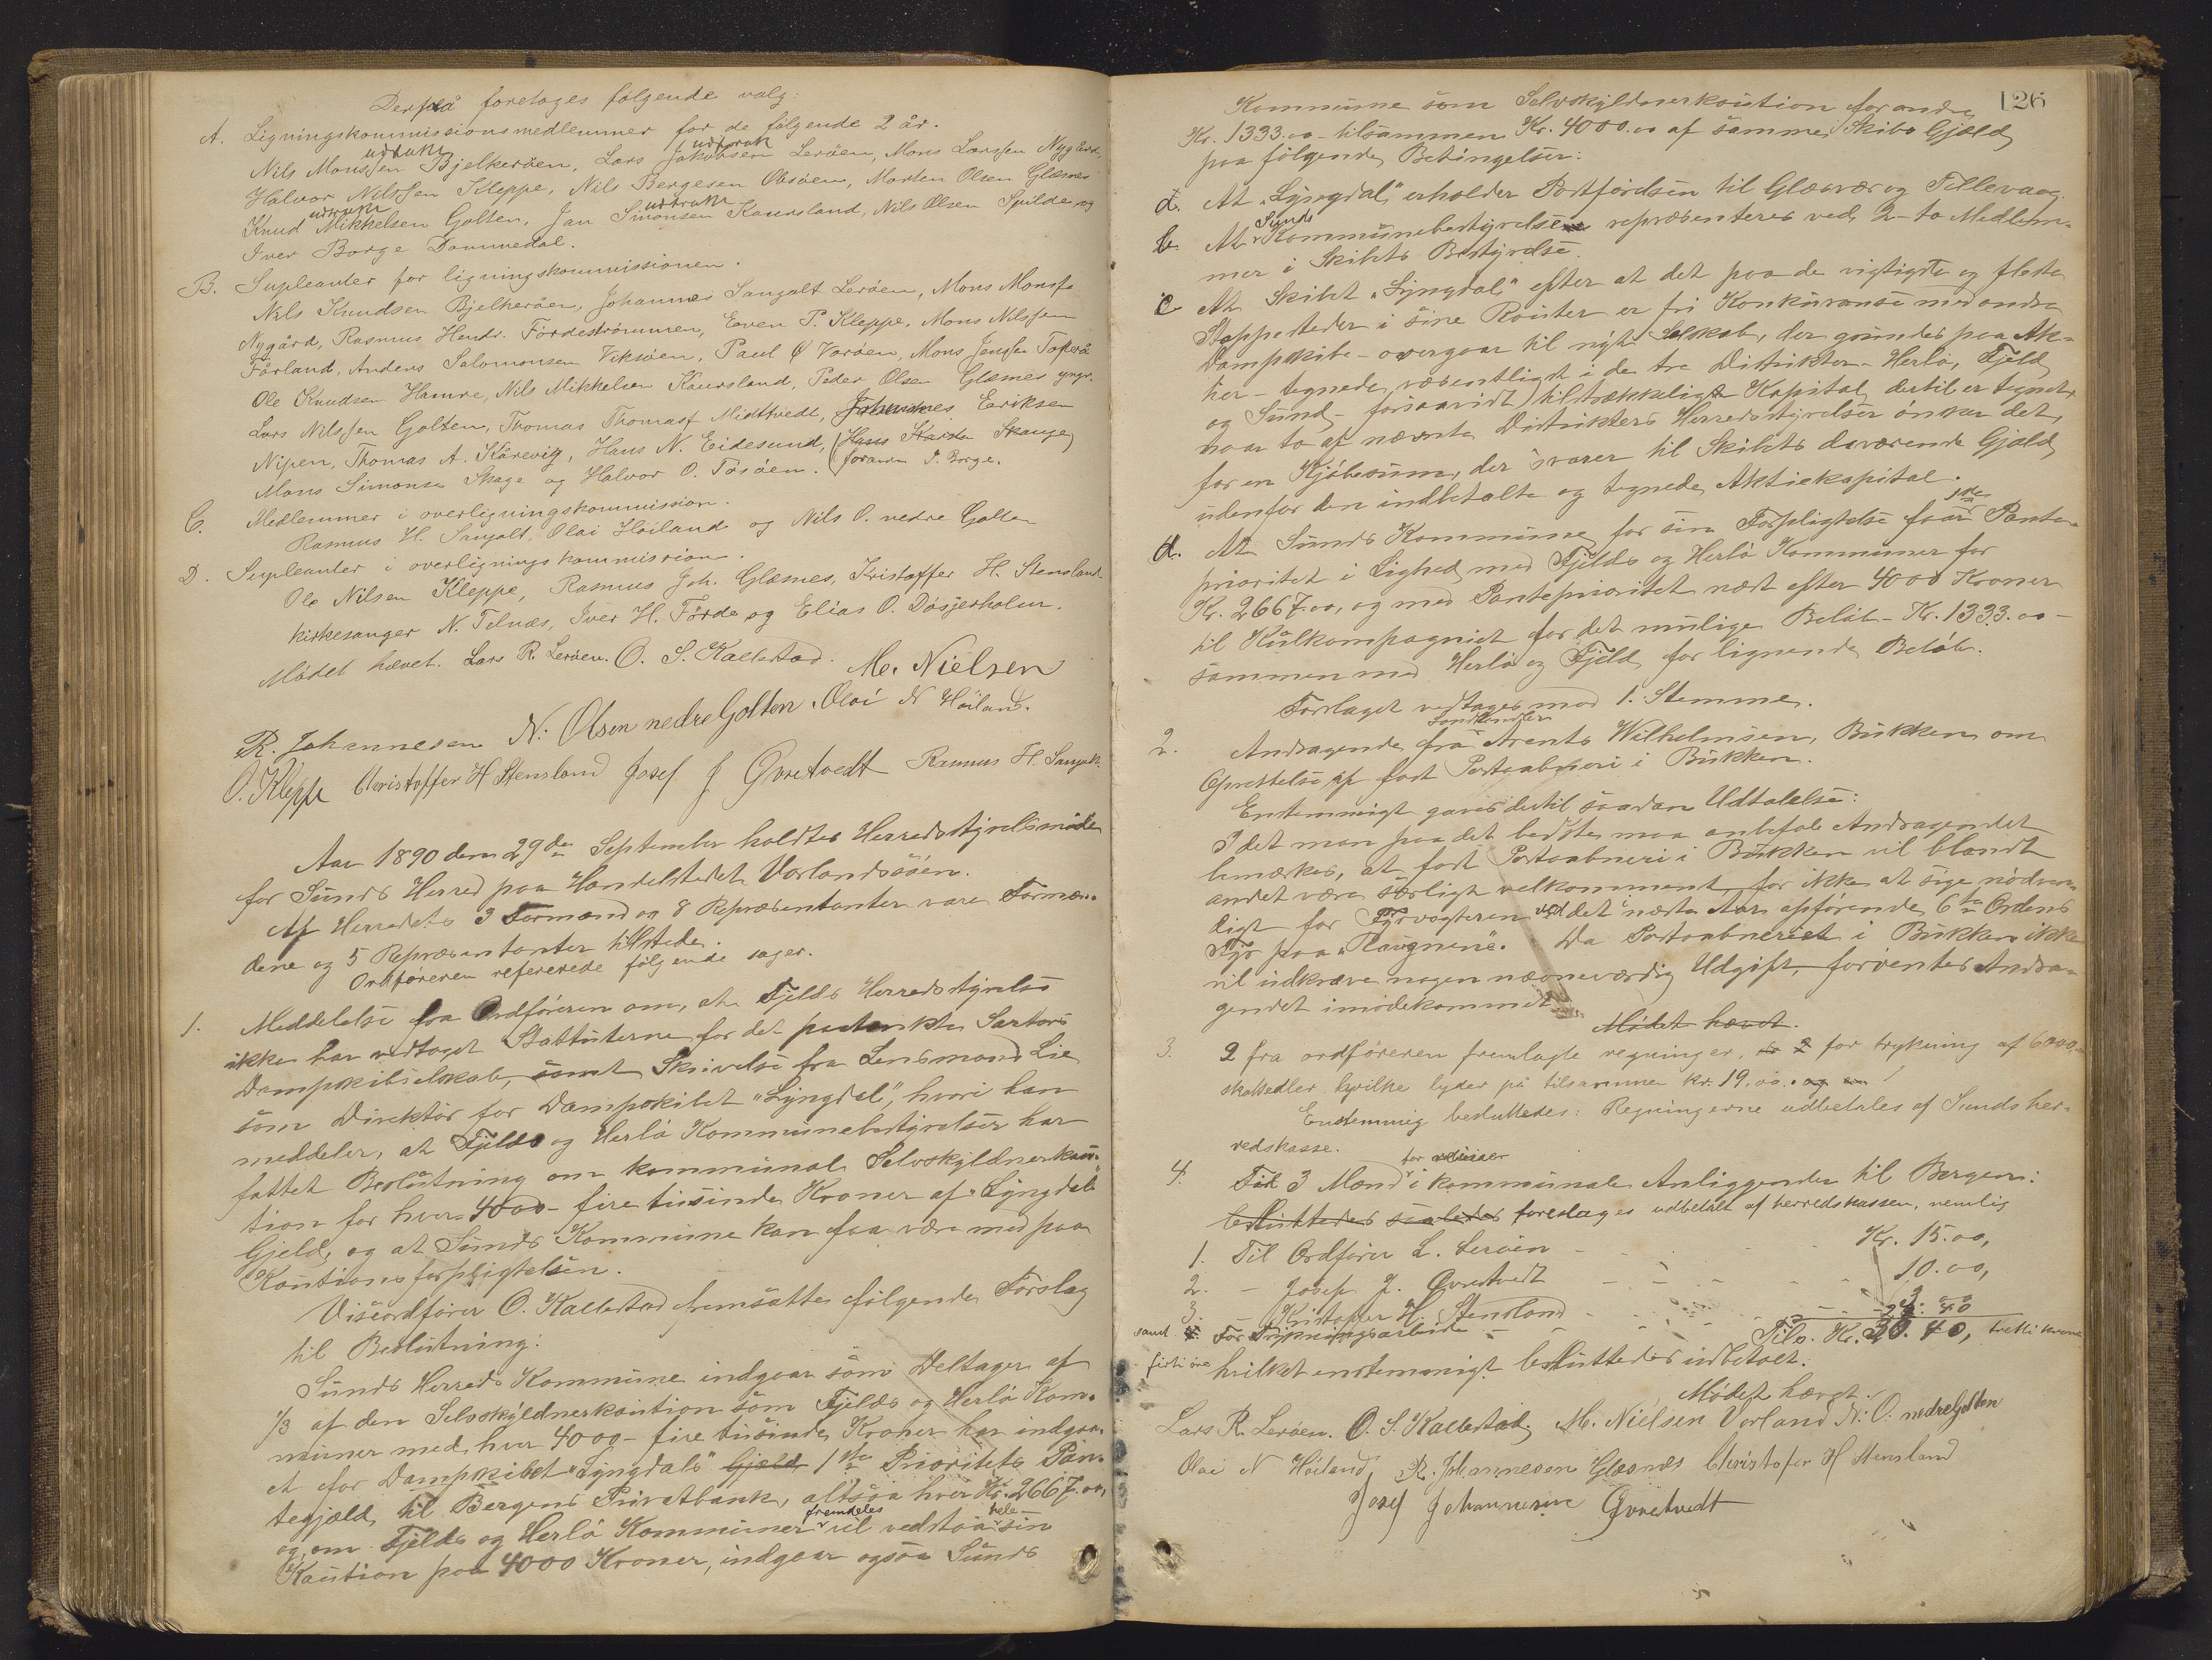 Derpå foretoges følgende valg:
A. Ligningskommissionsmedlemmer for de følgende 2 år.
udtrukk udtrukk
Nils Monssen Bjelkerøen, Lars Jakobsen Lerøen, Mons Larssen Nygård,
Halvor Nilssen Kleppe, Nils Bergesen Olsøen, Morten Olsen Glæsnes
udtrukk udtrukk
Knud Mikkelsen Golten, Jan Simonsen Kaursland, Nils Olsen Spilde og
Iver Borge Dommedal.
B. Supleanter for ligningskommissionen.
Nils Knudsen Bjelkerøen, Johannes Sangolt Lerøen, Mons Monss.
Nygård, Rasmus Hendr. Førdestrømmen, Even P. Kleppe, Mons Nilssen
Førland, Anders Salomonsen Viksøen, Paul Ø Vorøen, Mons Jenssen Tofterå
Ole Knudsen Hamre, Nils Mikkelsen Kaursland, Peder Olsen Glæsnes yngr.
Lars Nilssen Golten, Thomas Thomass Midttvedt, Johannes Eriksen
Nipen, Thomas A. Kårevig, Hans N. Eidesund, (Hans Skage
Mons Simonsen Skage og Halvor O. Tøsøen. (foran J. Borge.
C. Medlemmer i overligningskommission.
Rasmus H. Sangolt, Olai Høiland og Nils O. nedre Golten
D. Supleanter i overligningskommission.
Ole Nilsen Kleppe, Rasmus Joh. Glæsnes, Kristoffer H. Stensland
kirkesanger N. Telnæs, Iver H. Førde og Elias O. Døsjerholm.
Mødet hævet. Lars R. Lerøen. O. S. Kallestad. M. Nielsen
R. Johannesen N. Olsen nedre Golten. Olai N Høiland.
O. Kleppe Christoffer H Stensland Josef J Øvretvedt Rasmus H. Sangolt.
Aar 1890 den 29de September holdtes Herredsstyrelsmøde
for Sunds Herred paa Handelstedet Vorlandsøsen.
Af Herredets 3 Formænd og 8 Repræsentanter vare Formæn-
dene og 5 Repræsentanter tilstede.
Ordføreren refererede følgende sager.
1. Meddelelse fra Ordføreren om, at Fjelds Herredsstyrelse
ikke har vedtaget Statuterne for det paatænkte Sartors
Dampskibselskab, samt Skrivelse fra Lensmand Lie
som Direktør for Dampskibet "Lyngdal", hvori han
meddeler, at Fjelds og Herlø Kommunebestyrelser har
fattet Beslutning om kommunal Selvskyldnerkau-
tion for hver 4000 - fire tusinde Kroner af "Lyngdals"
Gjeld, og at Sunds Kommune kan faa være med paa
Kautionsforpligtelsen.
Viseordfører O. Kallestad fremsatte følgende Forslag
til Beslutning:
Sunds Herreds Kommune indgaar som Deltager af
1/3 af den Selvskyldnerkaution som Fjelds og Herlø Kom-
muner med hver 4000 - fire tusinde Kroner har indgaa-
et for Dampskibet "Lyngdals" Gjæld 1ste Prioritets Pan-
tegjæld til Bergens Privatbank, altsaa hver Kr. 2667.00,
fremdeles hele
og om Fjelds og Herlø Kommuner vil vedstaa sin
Kaution paa 4000 Kroner, indgaar ogsaa Sunds
126
Kommune som Selvskyldnerkaution for andre
Kr. 1333.00 - tilsammen Kr. 4000.00 af samme Skibs Gjæld
paa følgende Betingelser:
a. At "Lyngdal" erholder Postførelsen til Glæsvær og Tellevaag
Sunds
b. At Kommunebestyrelse repræsenteres ved 2 - to Medlem-
mer i Skibets Bestyrelse.
c At Skibet "Lyngdal" efter at det paa de vigtigste og fleste
Stoppesteder i sine Router er fri Konkuranse med andre
Dampskibe - overgaar til nyt Selskab, der grundes paa Ak-
tier - tegnede væsentligst i de tre Distrikter - Herlø, Fjeld
og Sund - forsaavidt tilstrækkeligt Kapital dertil er tegnet,
naar to af nævnte Distrikters Herredsstyrelser ønsker det,
for en Kjøbesum, der svarer til Skibets daværende Gjæld
udenfor den indbetalte og tegnede Aktiekapital.
1ste
d. At Sunds Kommune for sin Forpligtelse faar Pante-
prioritet i Lighed med Fjelds og Herlø Kommuner for
Kr. 2667.00, og med Pantepriotitet næst efter 4000 Kroner
til Kulkompagniet for det mulige Beløb - Kr. 1333.00 -
sammen med Herlø og Fjeld for lignende Beløb.
Forslaget vedtages mod 1. Stemme.
Landhandler
2. Andragende fra Arents Wilhelmsen, Bukken om
Oprettelse af fast Postaabneri i Bukken.
Enstemmigt gaves dertil saadan Udtalelse:
I det man paa det bedste maa anbefale Andragendet
bemærkes, at fast Postaabneri i Bukken vil blandt
andet være særligt velkomment, for ikke at sige nødven-
digt for Fyrvogteren ved det næste Aar opførende 6te Ordens
Fyr paa "Raugnene". Da Postaabneriet i Bukken ikke
vil udkræve nogen nævneværdig Udgift, forventes Andra-
gendet imødekommet.
Mødet hævet.
3. 2 fra ordføreren fremlagte regninger, for trykning af 6000
skattsedler hvilke lyder på tilsammen kr. 19.00.
Enstemmig besluttedes: Regningerne udbetales af Sunds her-
redskasse.
for reiser
4. Til 3 Mænd i kommunale Anliggender til Bergen:
besluttedes saaledes foreslages udbetalt af herredskassen, nemlig
1. Til Ordfører L. Lerøen - Kr. 15.00,
2. - Josef J. Øvretvedt - 10.00,
3. - Kristoffer H. Stensland
samt For Skrivningsarbeide
Tils. Kr. 30.40, tretti krone
firti øre hvilket enstemmigt besluttedes udbetalt.
Mødet hævet.
Lars R. Lerøen. O. S. Kallestad, M. Nielsen Vorland N. O. nedre Golten
Olai N Høiland R. Johannesen Glæsnes Christofer H Stensland
Josef Johannesen Øvretvedt